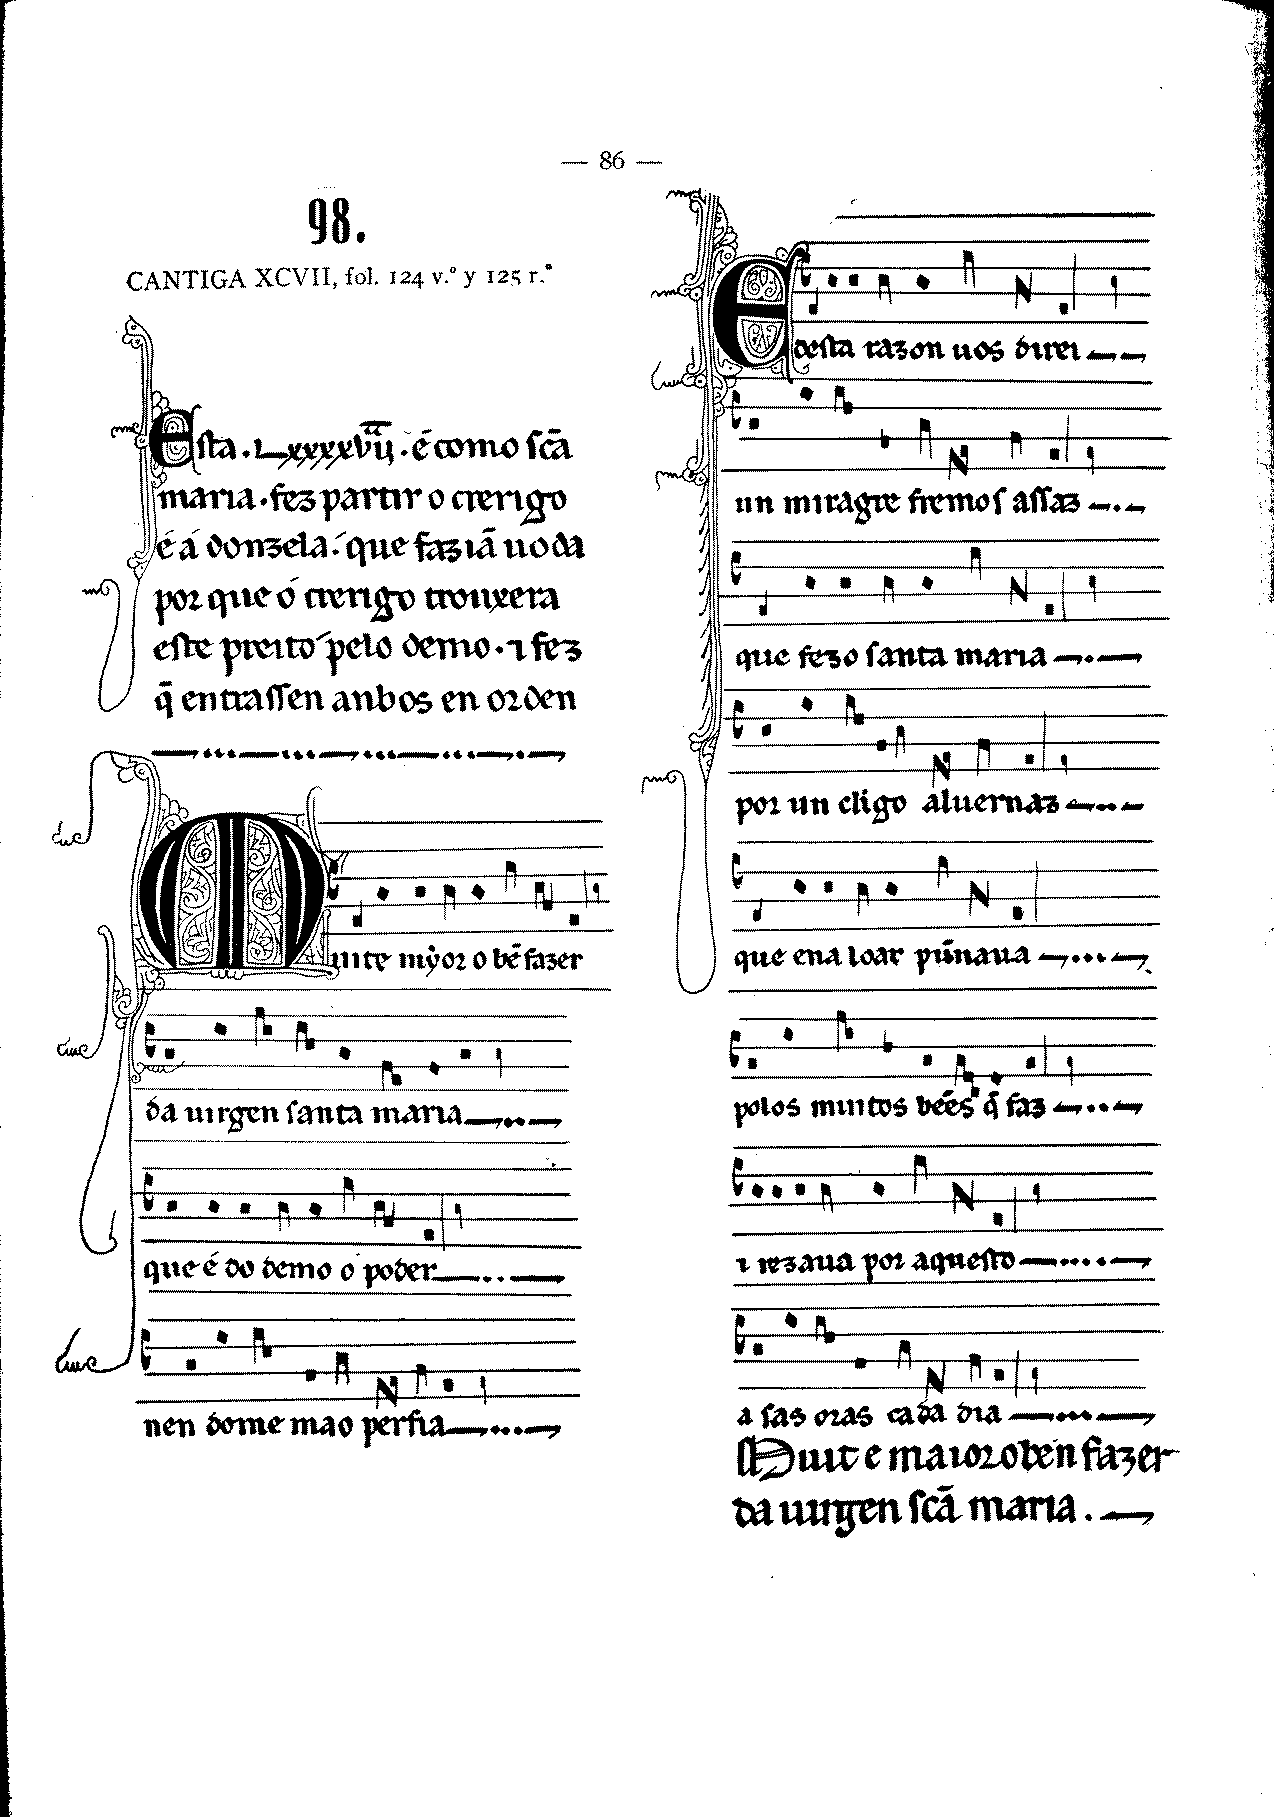 — 86 —
98.
CANTIGA XCVII, fol. 124 v.º y 125 r.º
Esta .Lxxxxvıȷ. é como sc̃a
maria . fez partir o crerigo
é á donzela . que fazıã uoda
por que ó crerigo trouxera
este preito pelo demo . ⁊ fez
q̃ entrassen anbos en orden
Muite mẏor o bẽ fazer
da uirgen santa maria
que é do demo o poder
nen dome mao perfia
E desta razon uos direi
un miragre fremos assaz
que fezo santa maria
por un cligo aluernaz
que ena loar pũnaua
polos muitos bẽes q̃ faz
⁊ rezaua por aquesto
a sas oras cada dia
Muit e maior o ben fazer
da uirgen sc̃a maria .